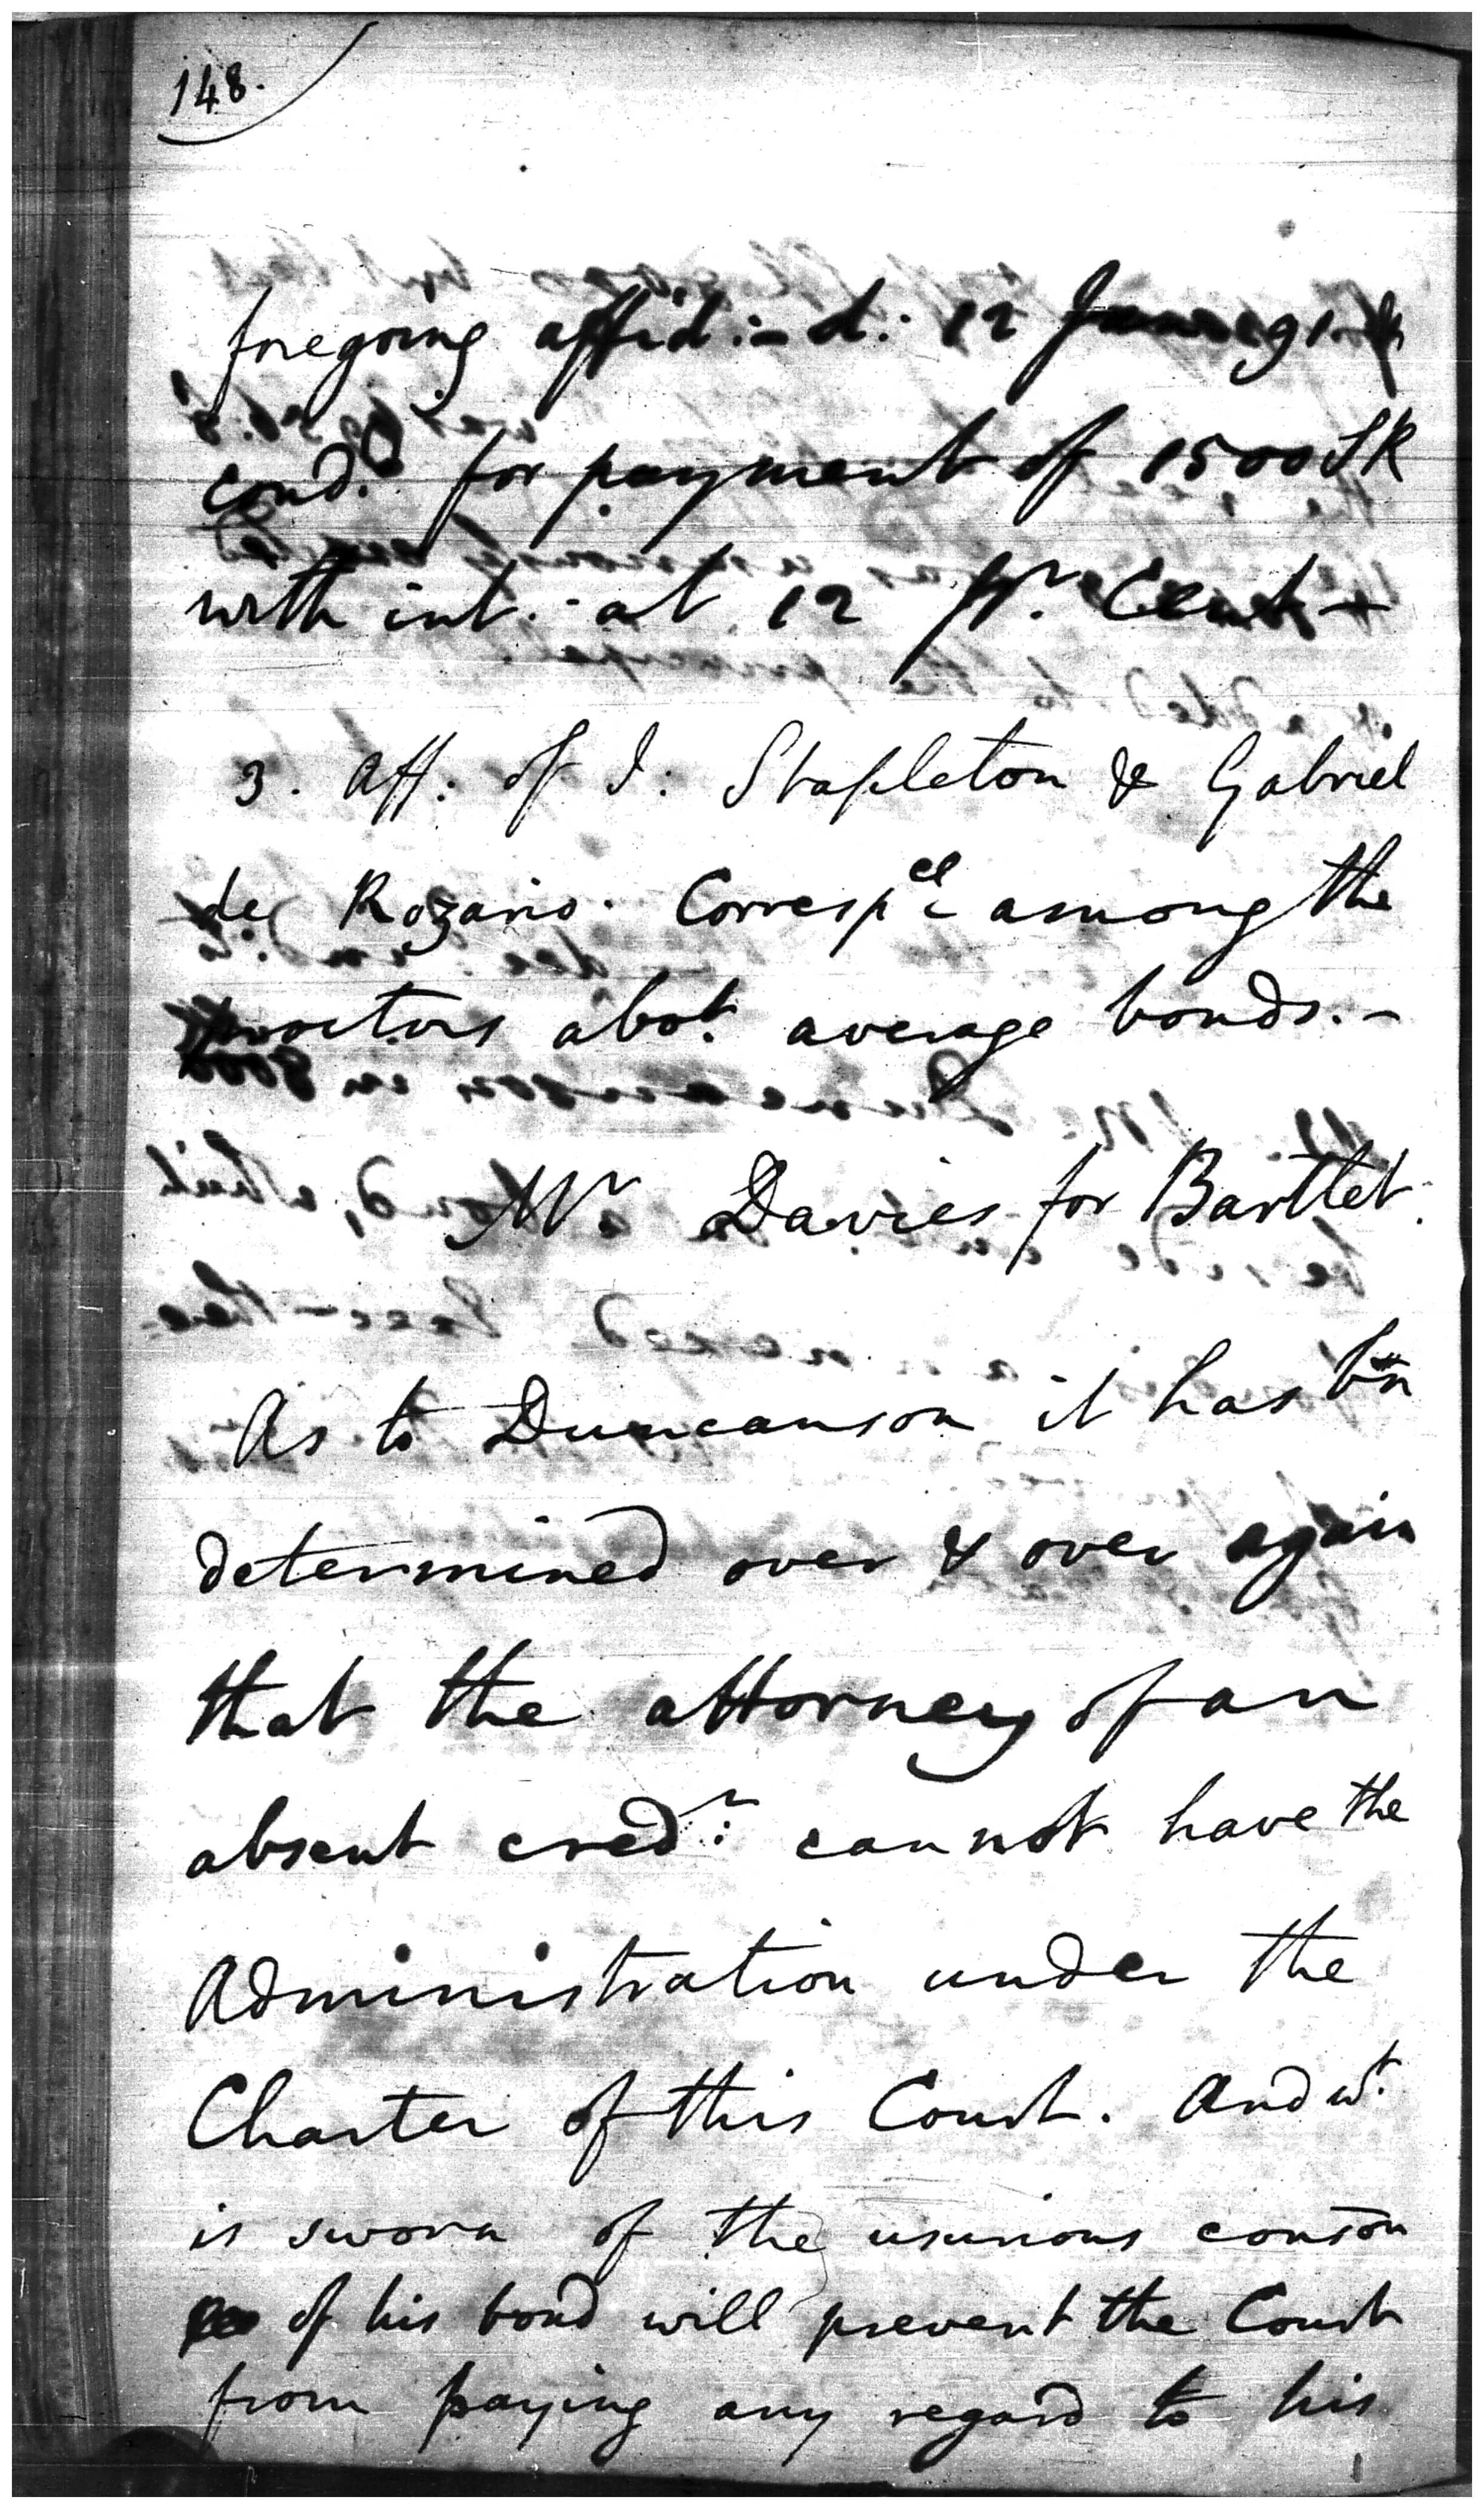 148.
foregoing affid:- d: 12 June 91
cond. for payment of 1500 SR
with int. at 12 pr. Cent -
3. Aff: of J: Stapleton & Gabriel
de Rozario. Corresp ce among the
proctors abot. average bonds. -
Mr Davies for Bartlet.
As to Duncanson it has bn
determined over & over again
that the attorney of an
absent credr: cannot have the
Administration under the
Charter of this Court. And wt.
is sworn of the usurious conson
of his bond will prevent the Court
from paying any regard to his